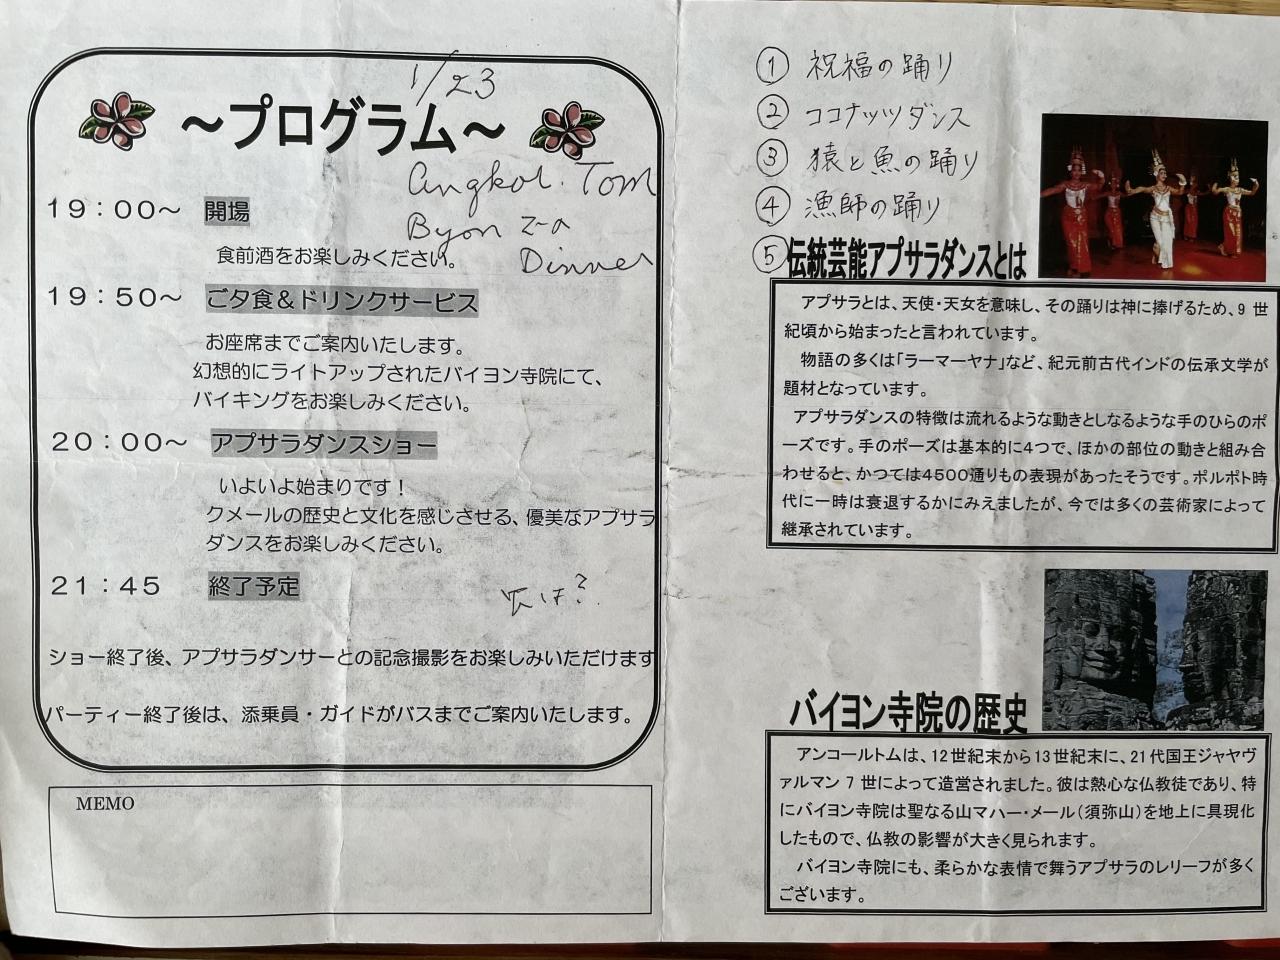 1/23
～プログラム～
Angkol. Tom
Byon
Dinner
19：00～ 開場
食前酒をお楽しみください。
19：50～ ご夕食＆ドリンクサービス
お座席までご案内いたします。
幻想的にライトアップされたバイヨン寺院にて、
バイキングをお楽しみください。
20：00～ アプサラダンスショー
いよいよ始まりです！
クメールの歴史と文化を感じさせる、優美なアプサラ
ダンスをお楽しみください。
21：45 終了予定
ショー終了後、アプサラダンサーとの記念撮影をお楽しみいただけます
パーティー終了後は、添乗員・ガイドがバスまでご案内いたします。
MEMO
① 祝福の踊り
② ココナッツダンス
③ 猿と魚の踊り
④ 漁師の踊り
⑤ 伝統芸能アプサラダンスとは
アプサラとは、天使・天女を意味し、その踊りは神に捧げるため、9 世
紀頃から始まったと言われています。
物語の多くは「ラーマーヤナ」など、紀元前古代インドの伝承文学が
題材となっています。
アプサラダンスの特徴は流れるような動きとしなるような手のひらのポ
ーズです。手のポーズは基本的に4つで、ほかの部位の動きと組み合
わせると、かつては4500通りもの表現があったそうです。ポルポト時
代に一時は衰退するかにみえましたが、今では多くの芸術家によって
継承されています。
バイヨン寺院の歴史
アンコールトムは、12世紀末から13世紀末に、21代国王ジャヤヴ
ァルマン 7 世によって造営されました。彼は熱心な仏教徒であり、特
にバイヨン寺院は聖なる山マハー・メール（須弥山）を地上に具現化
したもので、仏教の影響が大きく見られます。
バイヨン寺院にも、柔らかな表情で舞うアプサラのレリーフが多く
ございます。